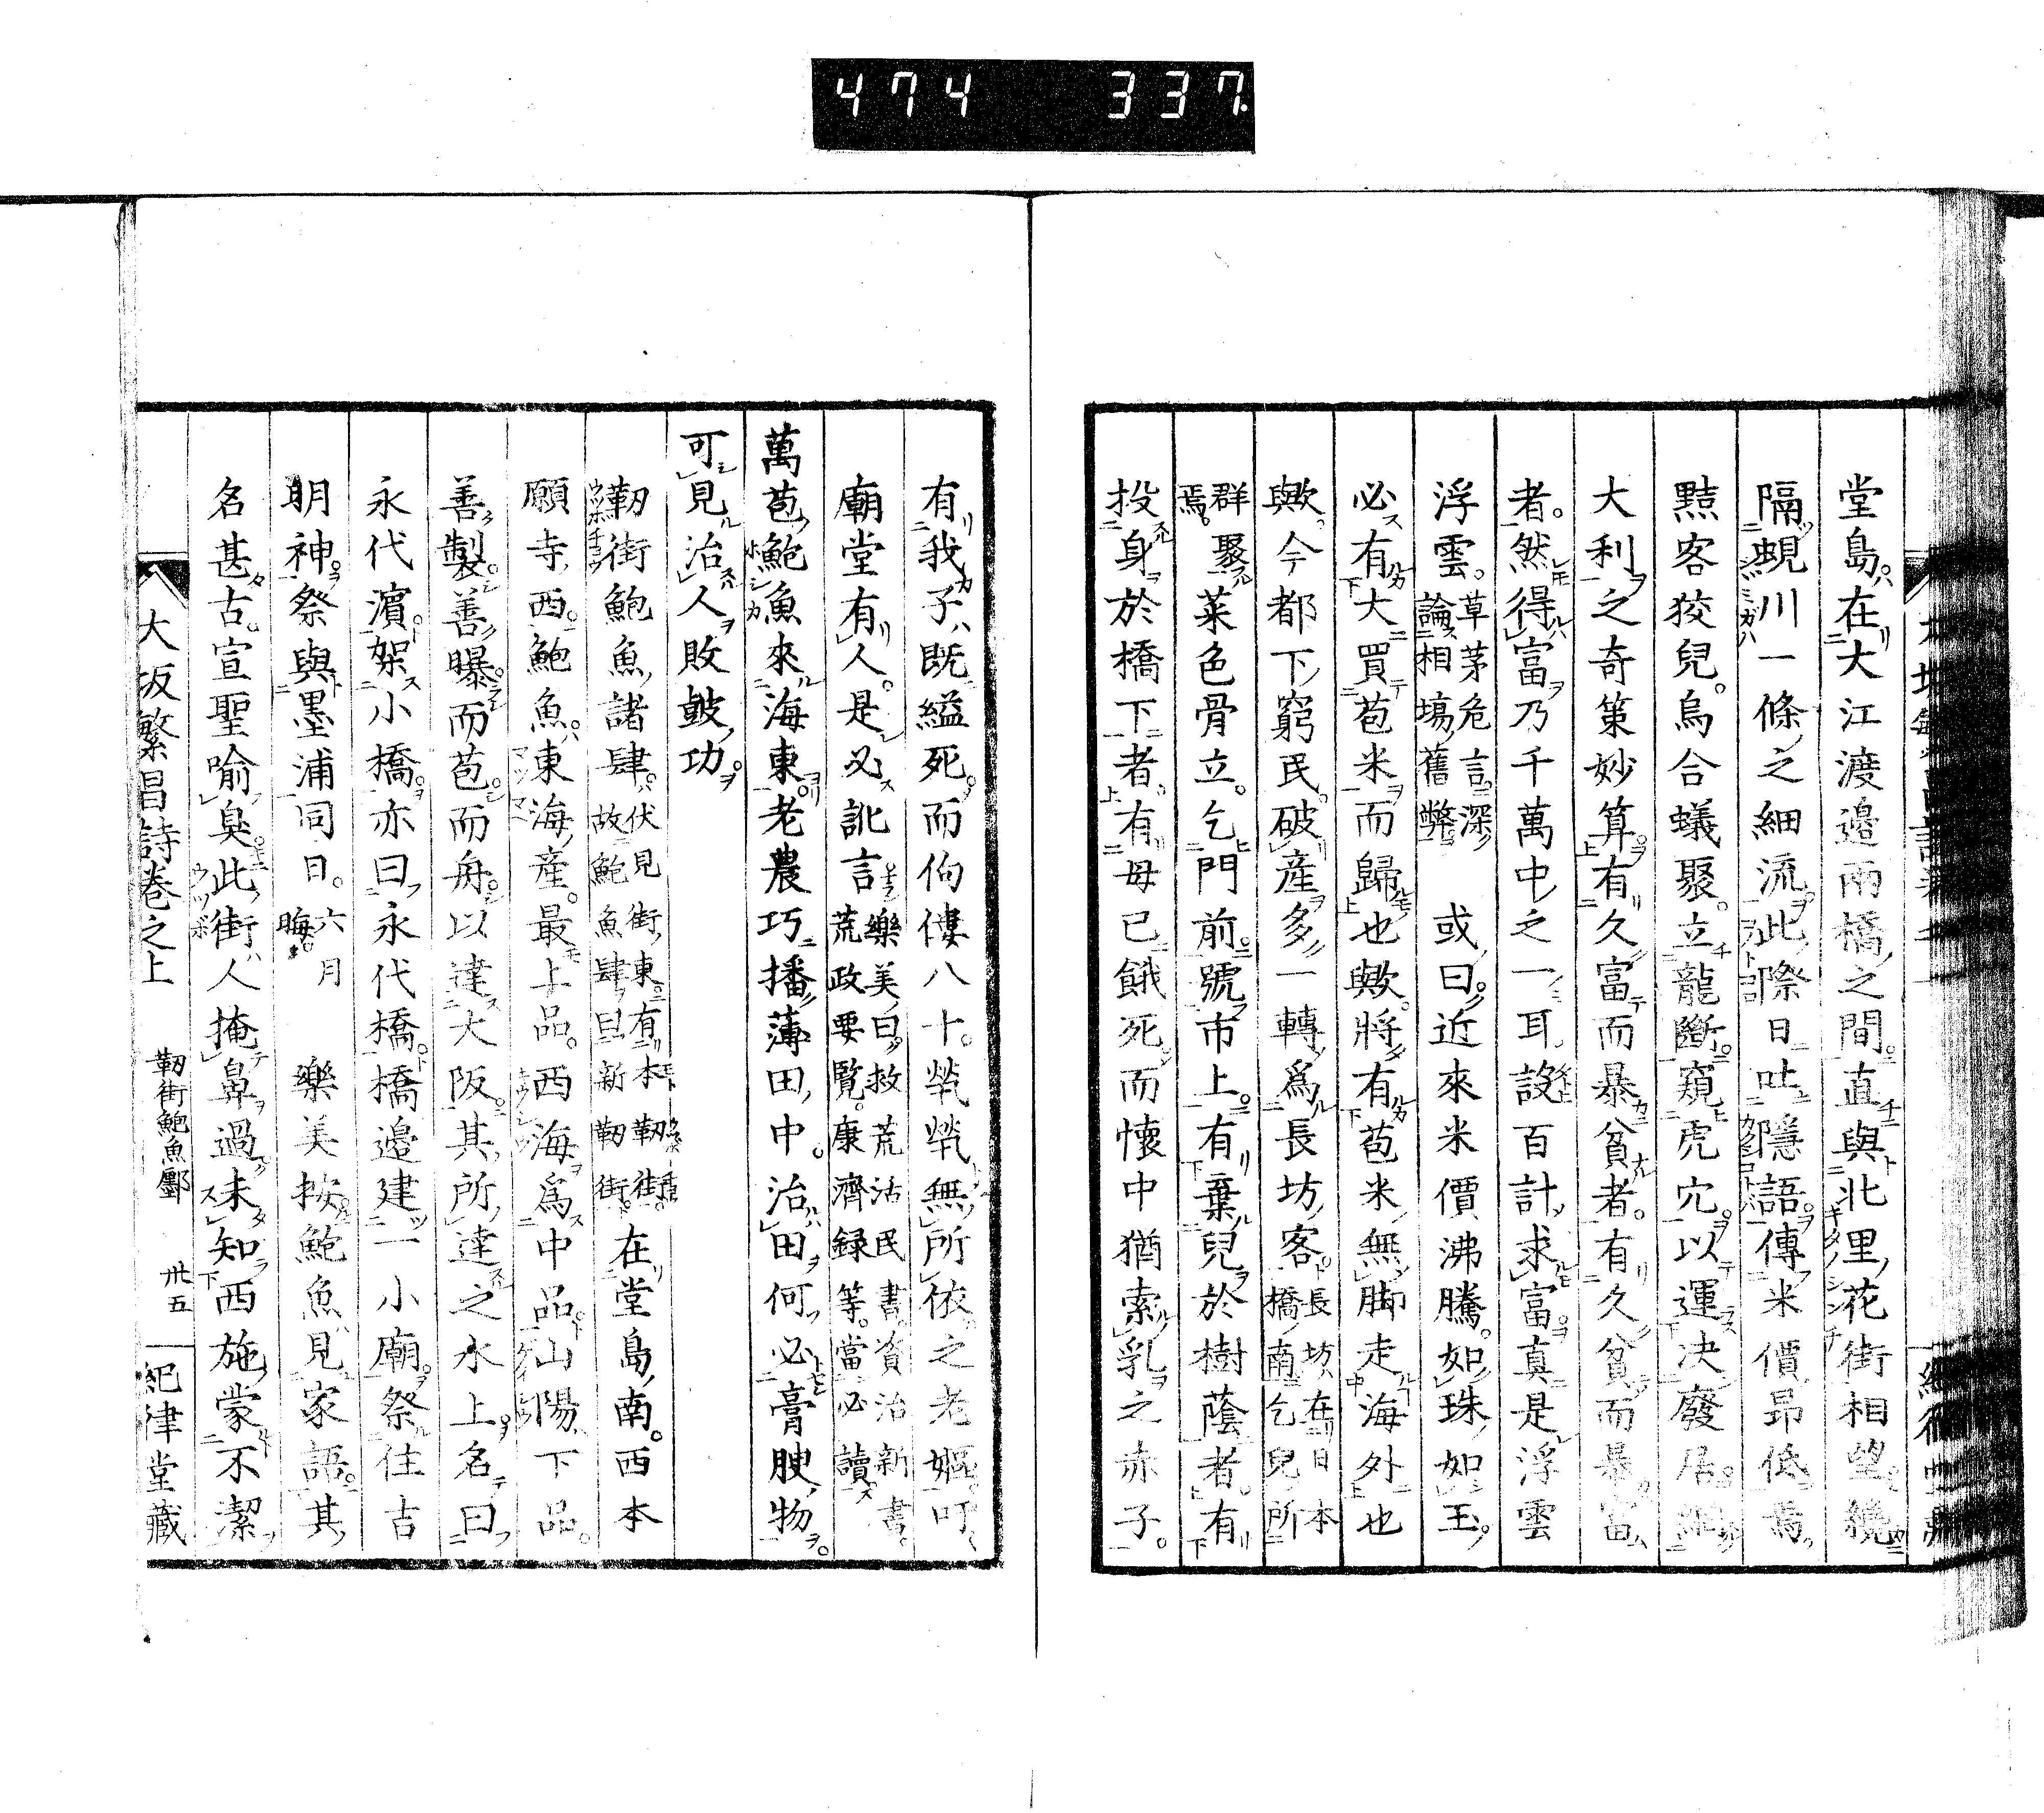 474 337
堂島在大江渡邉兩橋之間直與北里花街相望纔
隔蜆川一條之細流此際日吐隱語傳米價昂低焉
黠客狡兒烏合蟻聚立龍斷窺虎穴以運决廢居
大利之奇策妙算有久富而暴貧者有久貧而暴富
者然得富乃千萬中之一耳設百計求富真是浮雲
浮雲草茅危言深論相塲舊弊 或曰近來米價沸騰如珠如玉
必有大買苞米而歸也歟將有苞米無脚走海外也
歟今都下窮民破産多一轉爲長坊客長坊在日本橋南乞兒所
群聚焉菜色骨立乞門前號市上有棄兒於樹蔭者有
投身於橋下者有母已餓死而懷中猶索乳之赤子
有我子既縊死而佝僂八十煢煢無所依之老嫗叮
廟堂有人是必訛言樂美曰救荒活民書資治新書荒政要覽康濟録等當必讀
萬苞鮑魚來海東老農巧播薄田中治田何必膏腴物
可見治人敗皷功
靭街鮑魚諸肆伏見街東有本靭街故鮑魚肆曰新靭街在堂島南西本
願寺西鮑魚東海產最上品西海爲中品山陽下品
善製善曝而苞而舟以達大阪其所達之水上名曰
永代濵架小橋亦曰永代橋橋邉建一小廟祭住吉
明神祭與墨浦同日六月晦 樂美按鮑魚見家語其
名甚古宣聖喻臭此街人掩鼻過未知西施蒙不潔
大坂繁昌詩卷之上 靭街鮑魚鄽 卅五 紀律堂藏